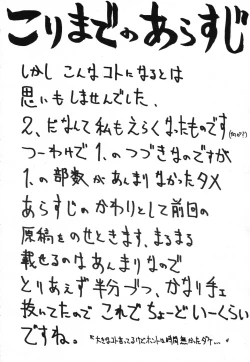 こりまでのあらすじ
しかし こんなコトになるとは
思いもしませんでした、
2、だなんて私もえらくなったものです(のか?)
つーわけで 1、のつづきなのですが
1、の部数があんまりなかったタメ
あらすじのかわりとして前回の
原稿をのせときます、まるまる
載せるのはあんまりなので
とりあえず半分づつ、かなりチェ
抜いてたので これでちょーどいーくらい
ですね。